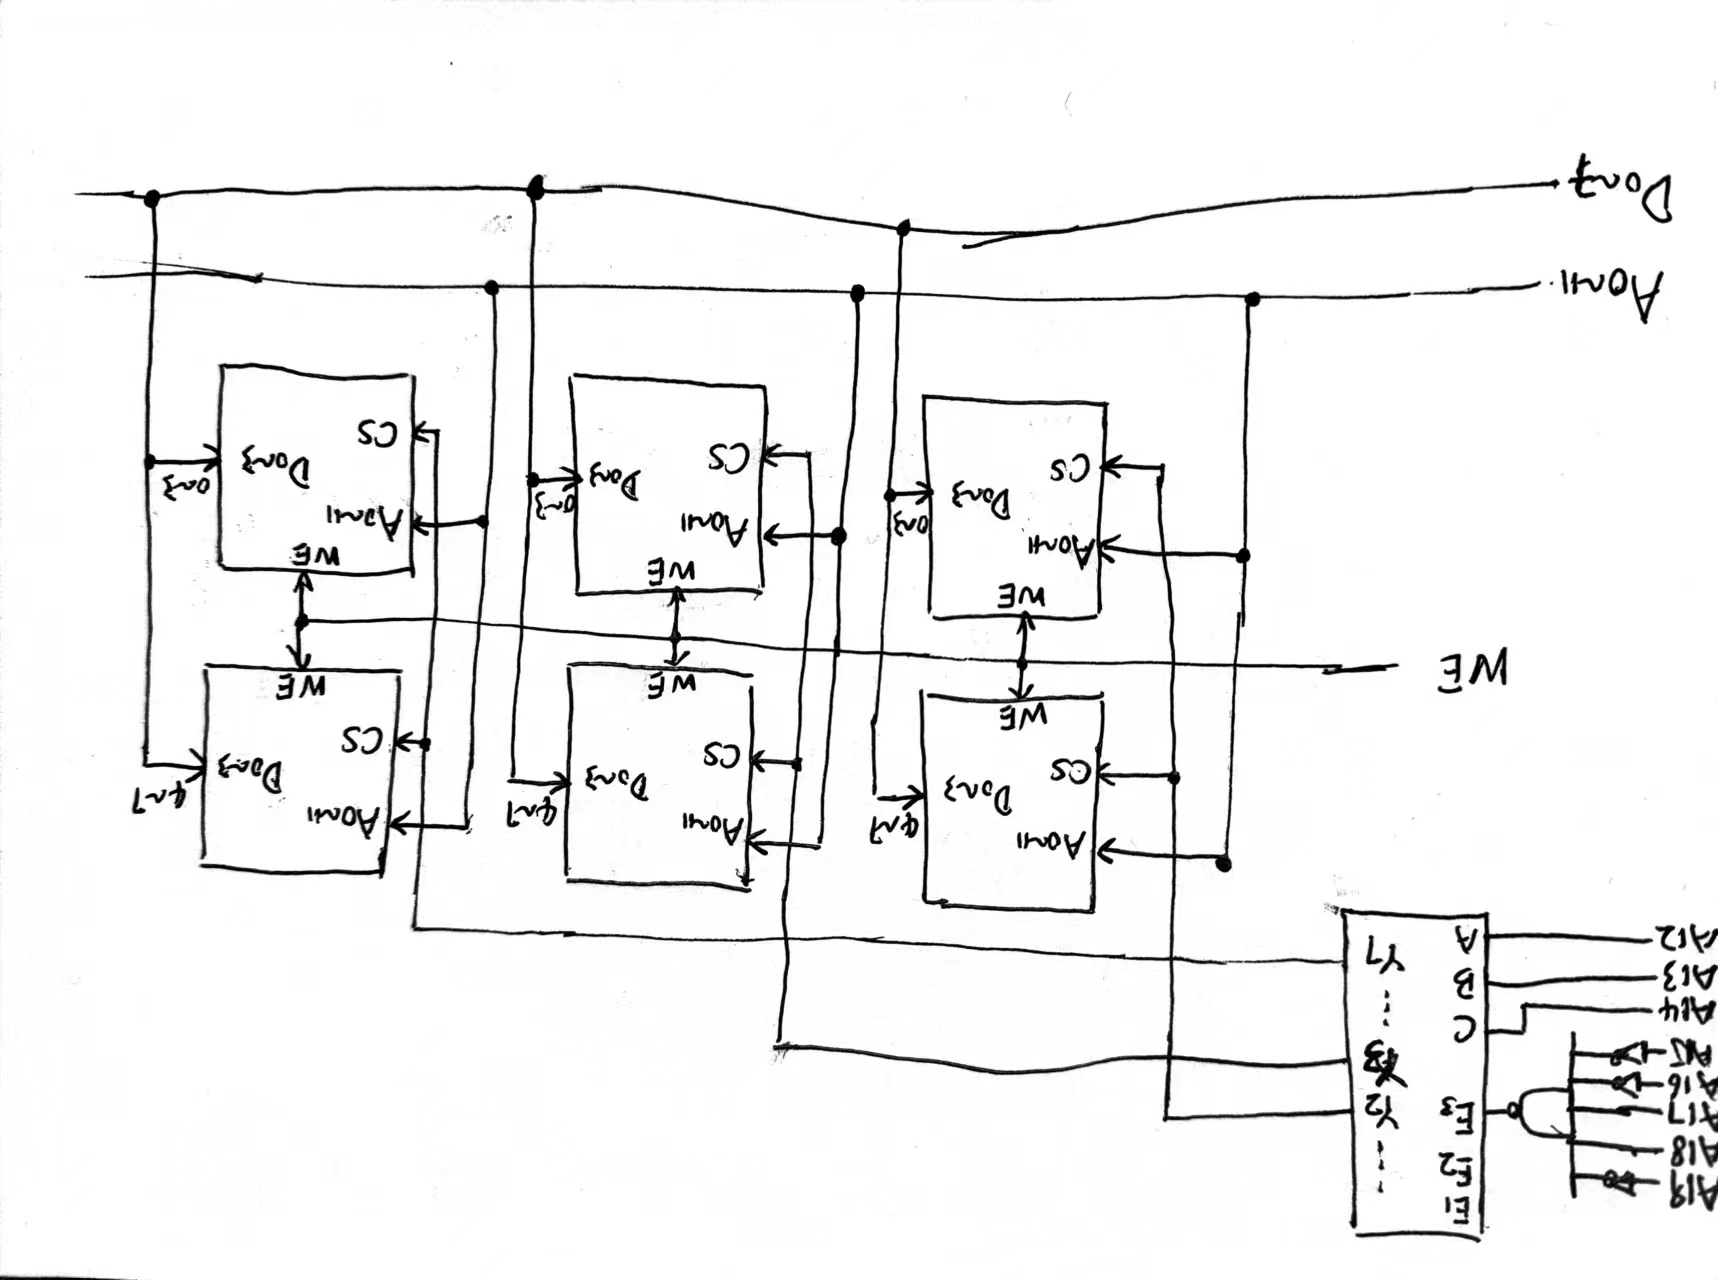 A19
A18
A17
A16
A15
A14
A13
A12
E1
E2
E3
C
B
A
Y2
Y3
Y7
A0~11
D0~3
4~7
CS
WE
A0~11
D0~3
4~7
CS
WE
A0~11
D0~3
4~7
CS
WE
WE
WE
A0~11
D0~3
0~3
CS
WE
A0~11
D0~3
0~3
CS
WE
A0~11
D0~3
0~3
CS
A0~11
D0~7